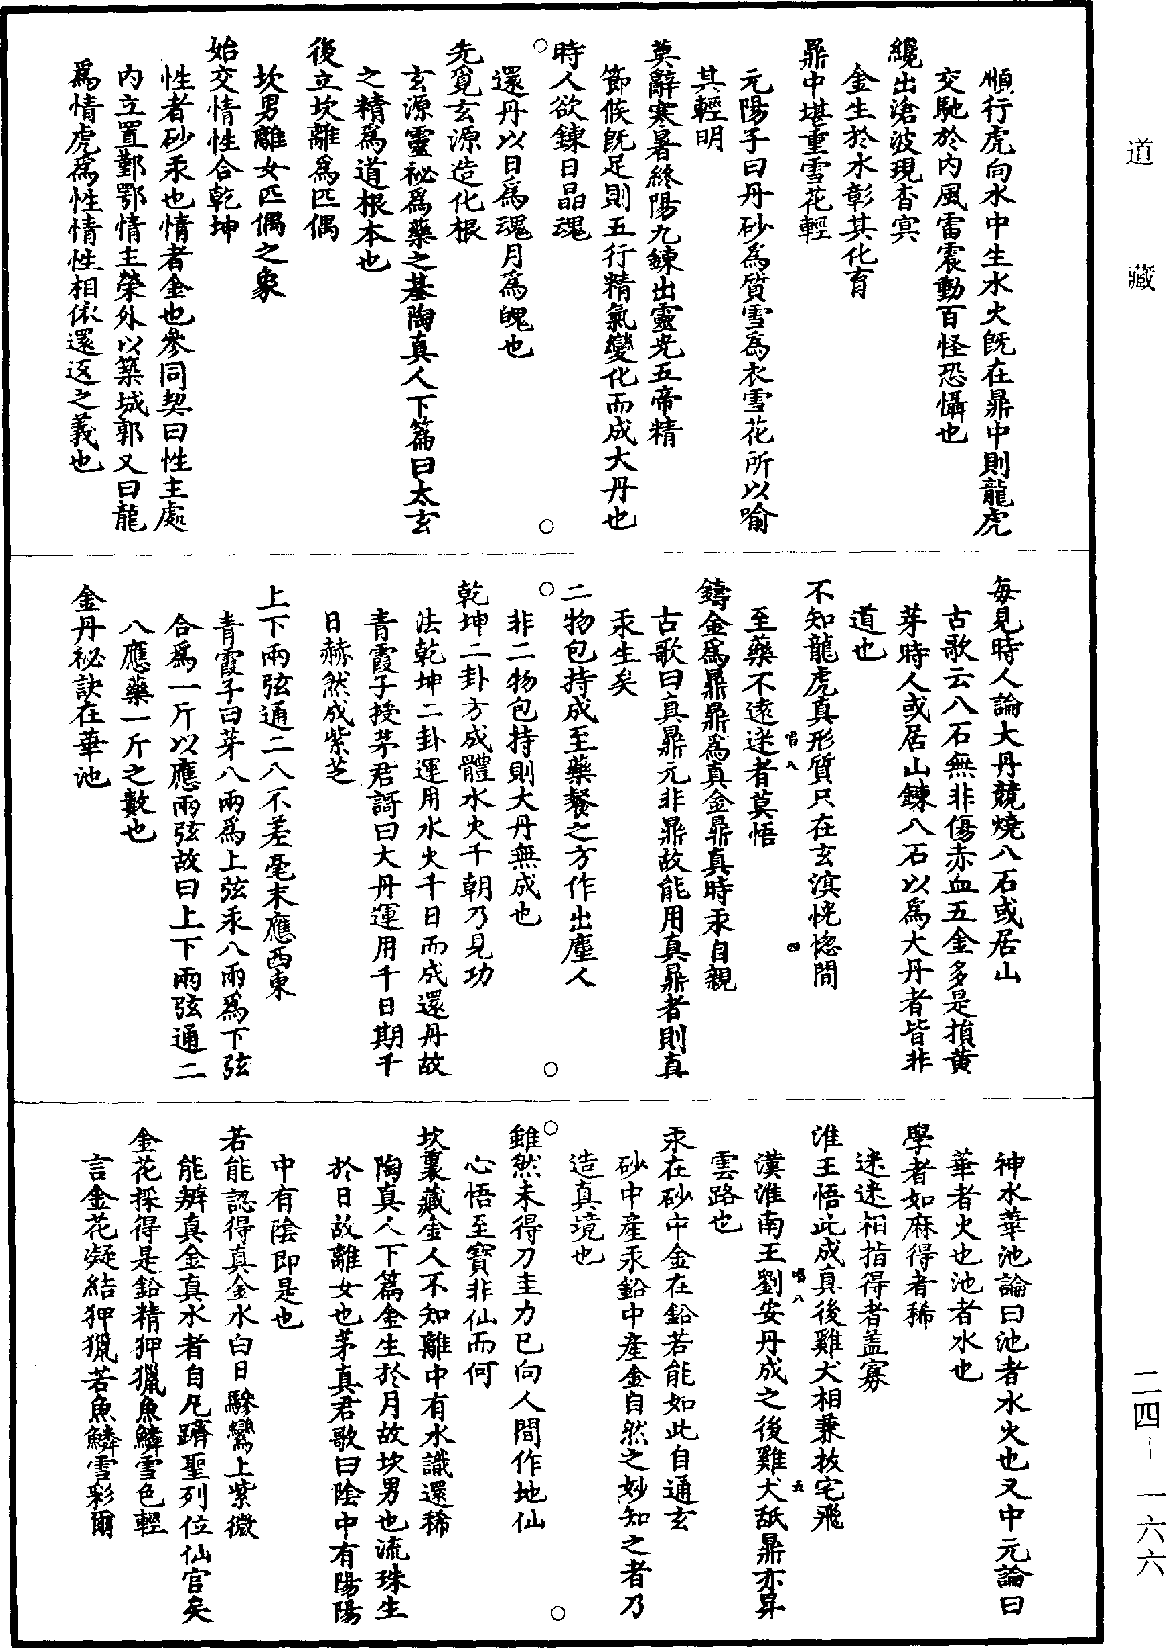 道藏
順行虎向水中生水火既在鼎中則龍虎
交馳於內風雷震動百怪恐懾也
纔出滄波現杳冥
金生於水彰其化育
鼎中堪重雪花輕
元陽子曰丹砂為質雪為衣雪花所以喻
其輕明
莫辭寒暑終陽九鍊出靈光五帝精
節候既足則五行精氣變化而成大丹也
時人欲鍊日晶魂
還丹以日為魂月為魄也
先覓玄源造化根
玄源靈祕為藥之基陶真人下篇曰太玄
之精為道根本也
後立坎離為匹偶
坎男離女匹偶之象
始交情性合乾坤
性者砂汞也情者金也參同契曰性主處
內立置鄞鄂情主榮外以築城郭又曰龍
為情虎為性情性相依還返之義也
每見時人論大丹競燒八石或居山
古歌云八石無非傷赤血五金多是損黃
芽時人或居山鍊八石以為大丹者皆非
道也
不知龍虎真形質只在玄溟恍惚間
至藥不遠迷者莫悟
鑄金為鼎鼎為真金鼎真時汞自親
古歌曰真鼎元非鼎故能用真鼎者則真
汞生矣
二物包持成至藥餐之方作出塵人
非二物包持則大丹無成也
乾坤二卦方成體水火千朝乃見功
法乾坤二卦運用水火千日而成還丹故
青霞子授茅君謌曰大丹運用千日期千
日赫然成紫芝
上下兩弦通二八不差毫末應西東
青霞子曰芽八兩為上弦汞八兩為下弦
合為一斤以應兩弦故曰上下兩弦通二
八應藥一斤之數也
金丹祕訣在華池
神水華池論曰池者水火也又中元論曰
華者火也池者水也
學者如麻得者稀
迷迷相指得者蓋寡
淮王悟此成真後雞犬相兼拔宅飛
漢淮南王劉安丹成之後雞犬舐鼎亦昇
雲路也
汞在砂中金在鉛若能如此自通玄
砂中產汞鉛中產金自然之妙知之者乃
造真境也
雖然未得刀圭力已向人間作地仙
心悟至寶非仙而何
坎裏藏金人不知離中有水識還稀
陶真人下篇金生於月故坎男也流珠生
於日故離女也茅真君歌曰陰中有陽陽
中有陰即是也
若能認得真金水白日驂鸞上紫微
能辨真金真水者自凡躋聖列位仙官矣
金花採得是鉛精狎獵魚鱗雪色輕
言金花凝結狎獵若魚鱗雪彩爾
二四－一六六